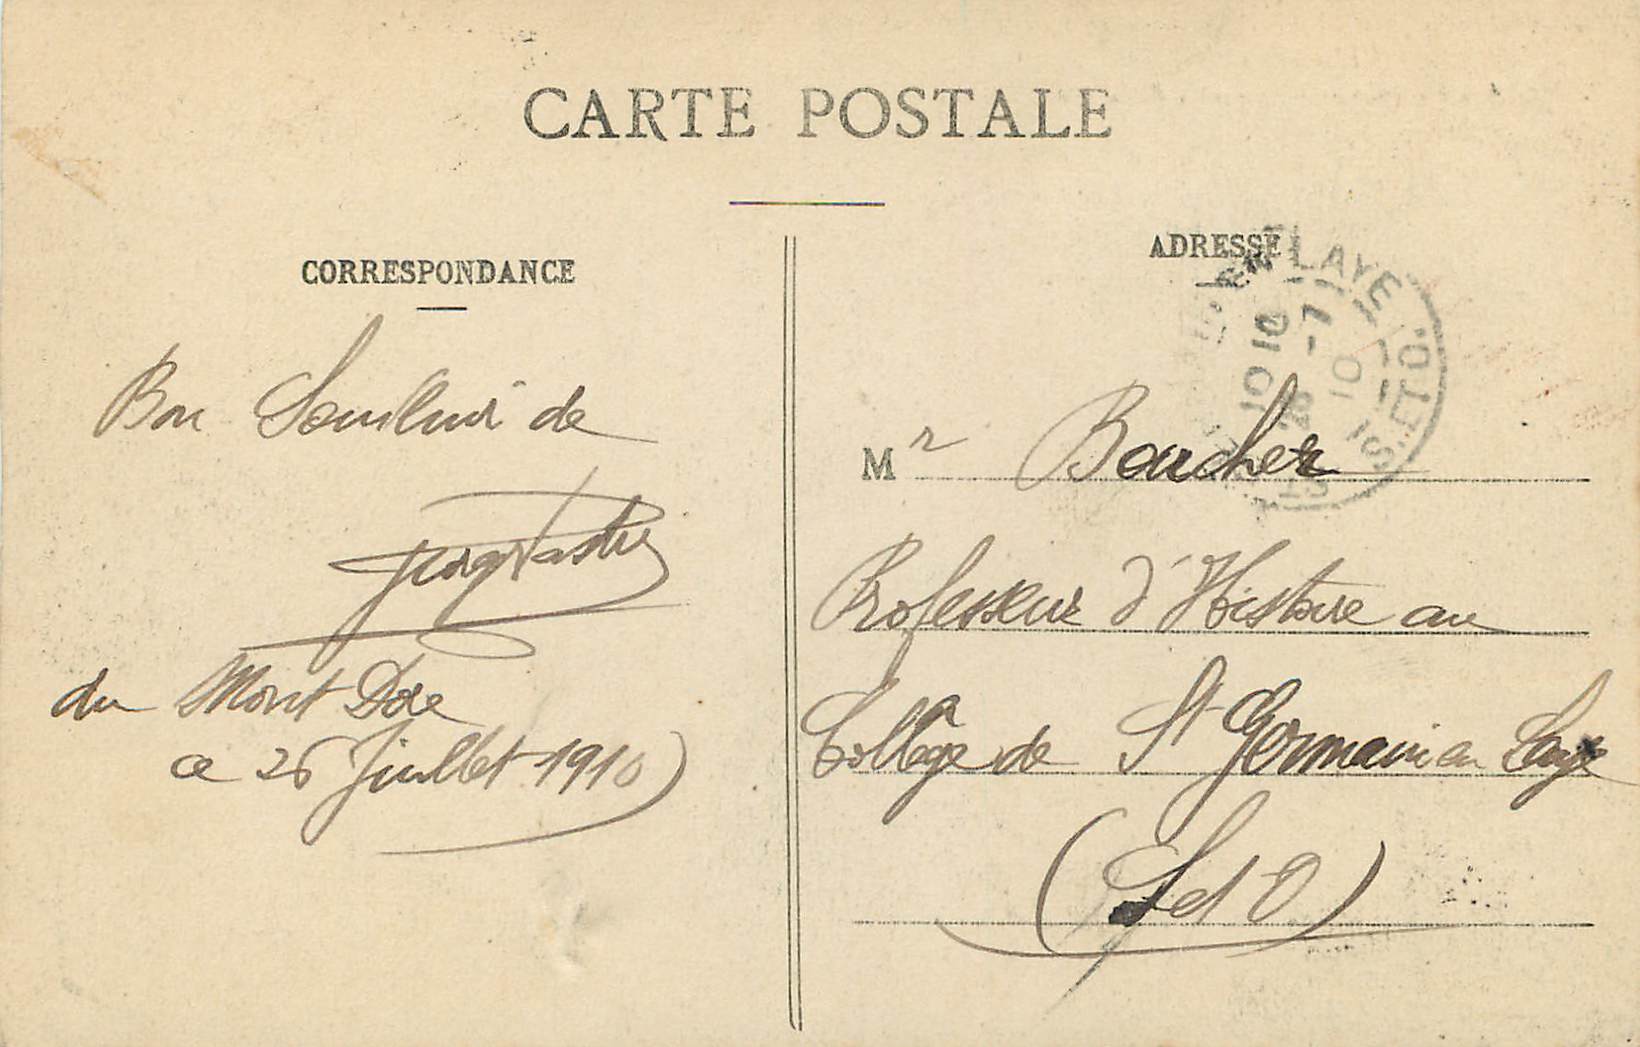 CARTE POSTALE
CORRESPONDANCE
Bon Souvenir de
du Mont Dore
ce 26 Juillet 1910
ADRESSE
Mr Boucher
Professeur d'Histoire au
Collège de St Germain en Laye
(S et O)
LAYE
S. ET O.